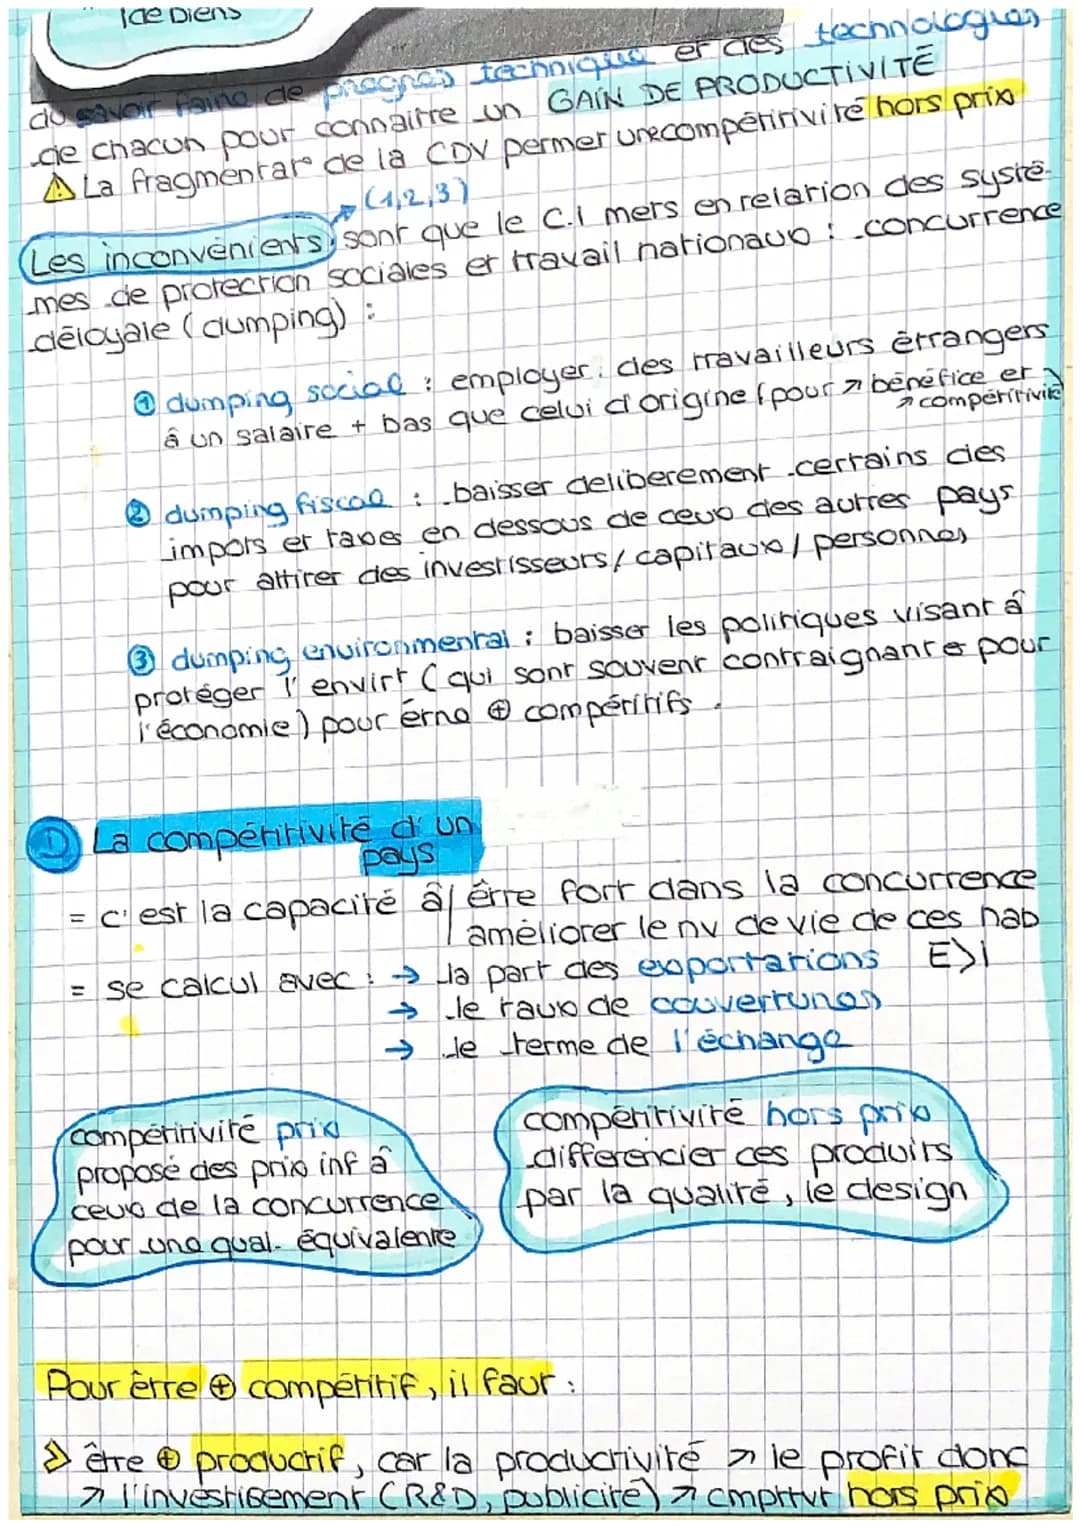 de biens
du savoir faire de progrès technique et des technologies
de chacun pour connaitre un GAIN DE PRODUCTIVITÉ
⚠ La fragmentat° de la CDV permet une compétitivité hors prix
(1,2,3)
Les inconvénients sont que le C.I mets en relation des systè-
mes de protection sociales et travail nationaux : concurrence
déloyale (dumping) :
① dumping social : employer des travailleurs étrangers
à un salaire + bas que celui d'origine (pour ↗ bénéfice et
↗ compétitivité)
② dumping fiscal : baisser deliberement certains des
impots et taxes en dessous de ceux des autres pays
pour attirer des investisseurs / capitaux / personnes
③ dumping environmental : baisser les politiques visant à
protéger l'envirt (qui sont souvent contraignante pour
l'économie) pour être ⊕ compétitifs.
① La compétitivité d'un
pays
= c'est la capacité à / être fort dans la concurrence
/ améliorer le nv de vie de ces hab
= se calcul avec : → la part des exportations E>I
→ le taux de couvertures
→ le terme de l'échange
compétitivité prix
proposé des prix inf à
ceux de la concurrence
pour une qual. équivalente
compétitivité hors prix
differencier ces produits
par la qualité, le design
Pour être ⊕ compétitif, il faut :
» être ⊕ productif, car la productivité ↗ le profit donc
↗ l'investisement (R&D, publicité) ↗ cmpttvt hors prix